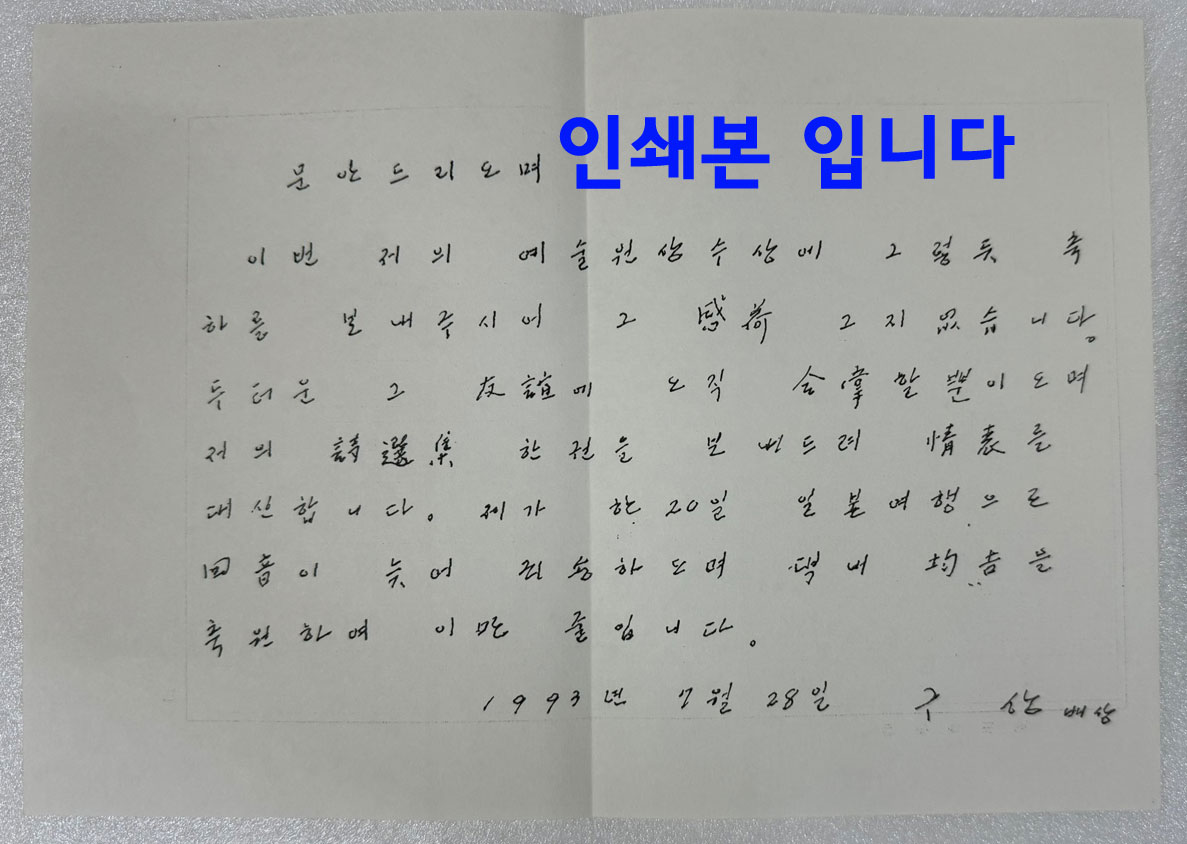 인쇄본 입니다
문안드리오며
이번 저의 예술원상수상에 그렇듯 축
하를 보내주시어 그 感荷 그지없습니다.
두터운 그 友誼에 오직 合掌할뿐이오며
저의 詩選集 한권을 보내드려 情表를
대신합니다. 제가 한 20일 일본여행으로
回音이 늦어 죄송하오며 댁내 均吉을
축원하여 이만 줄입니다.
1993년 7월 28일 구 상 배상